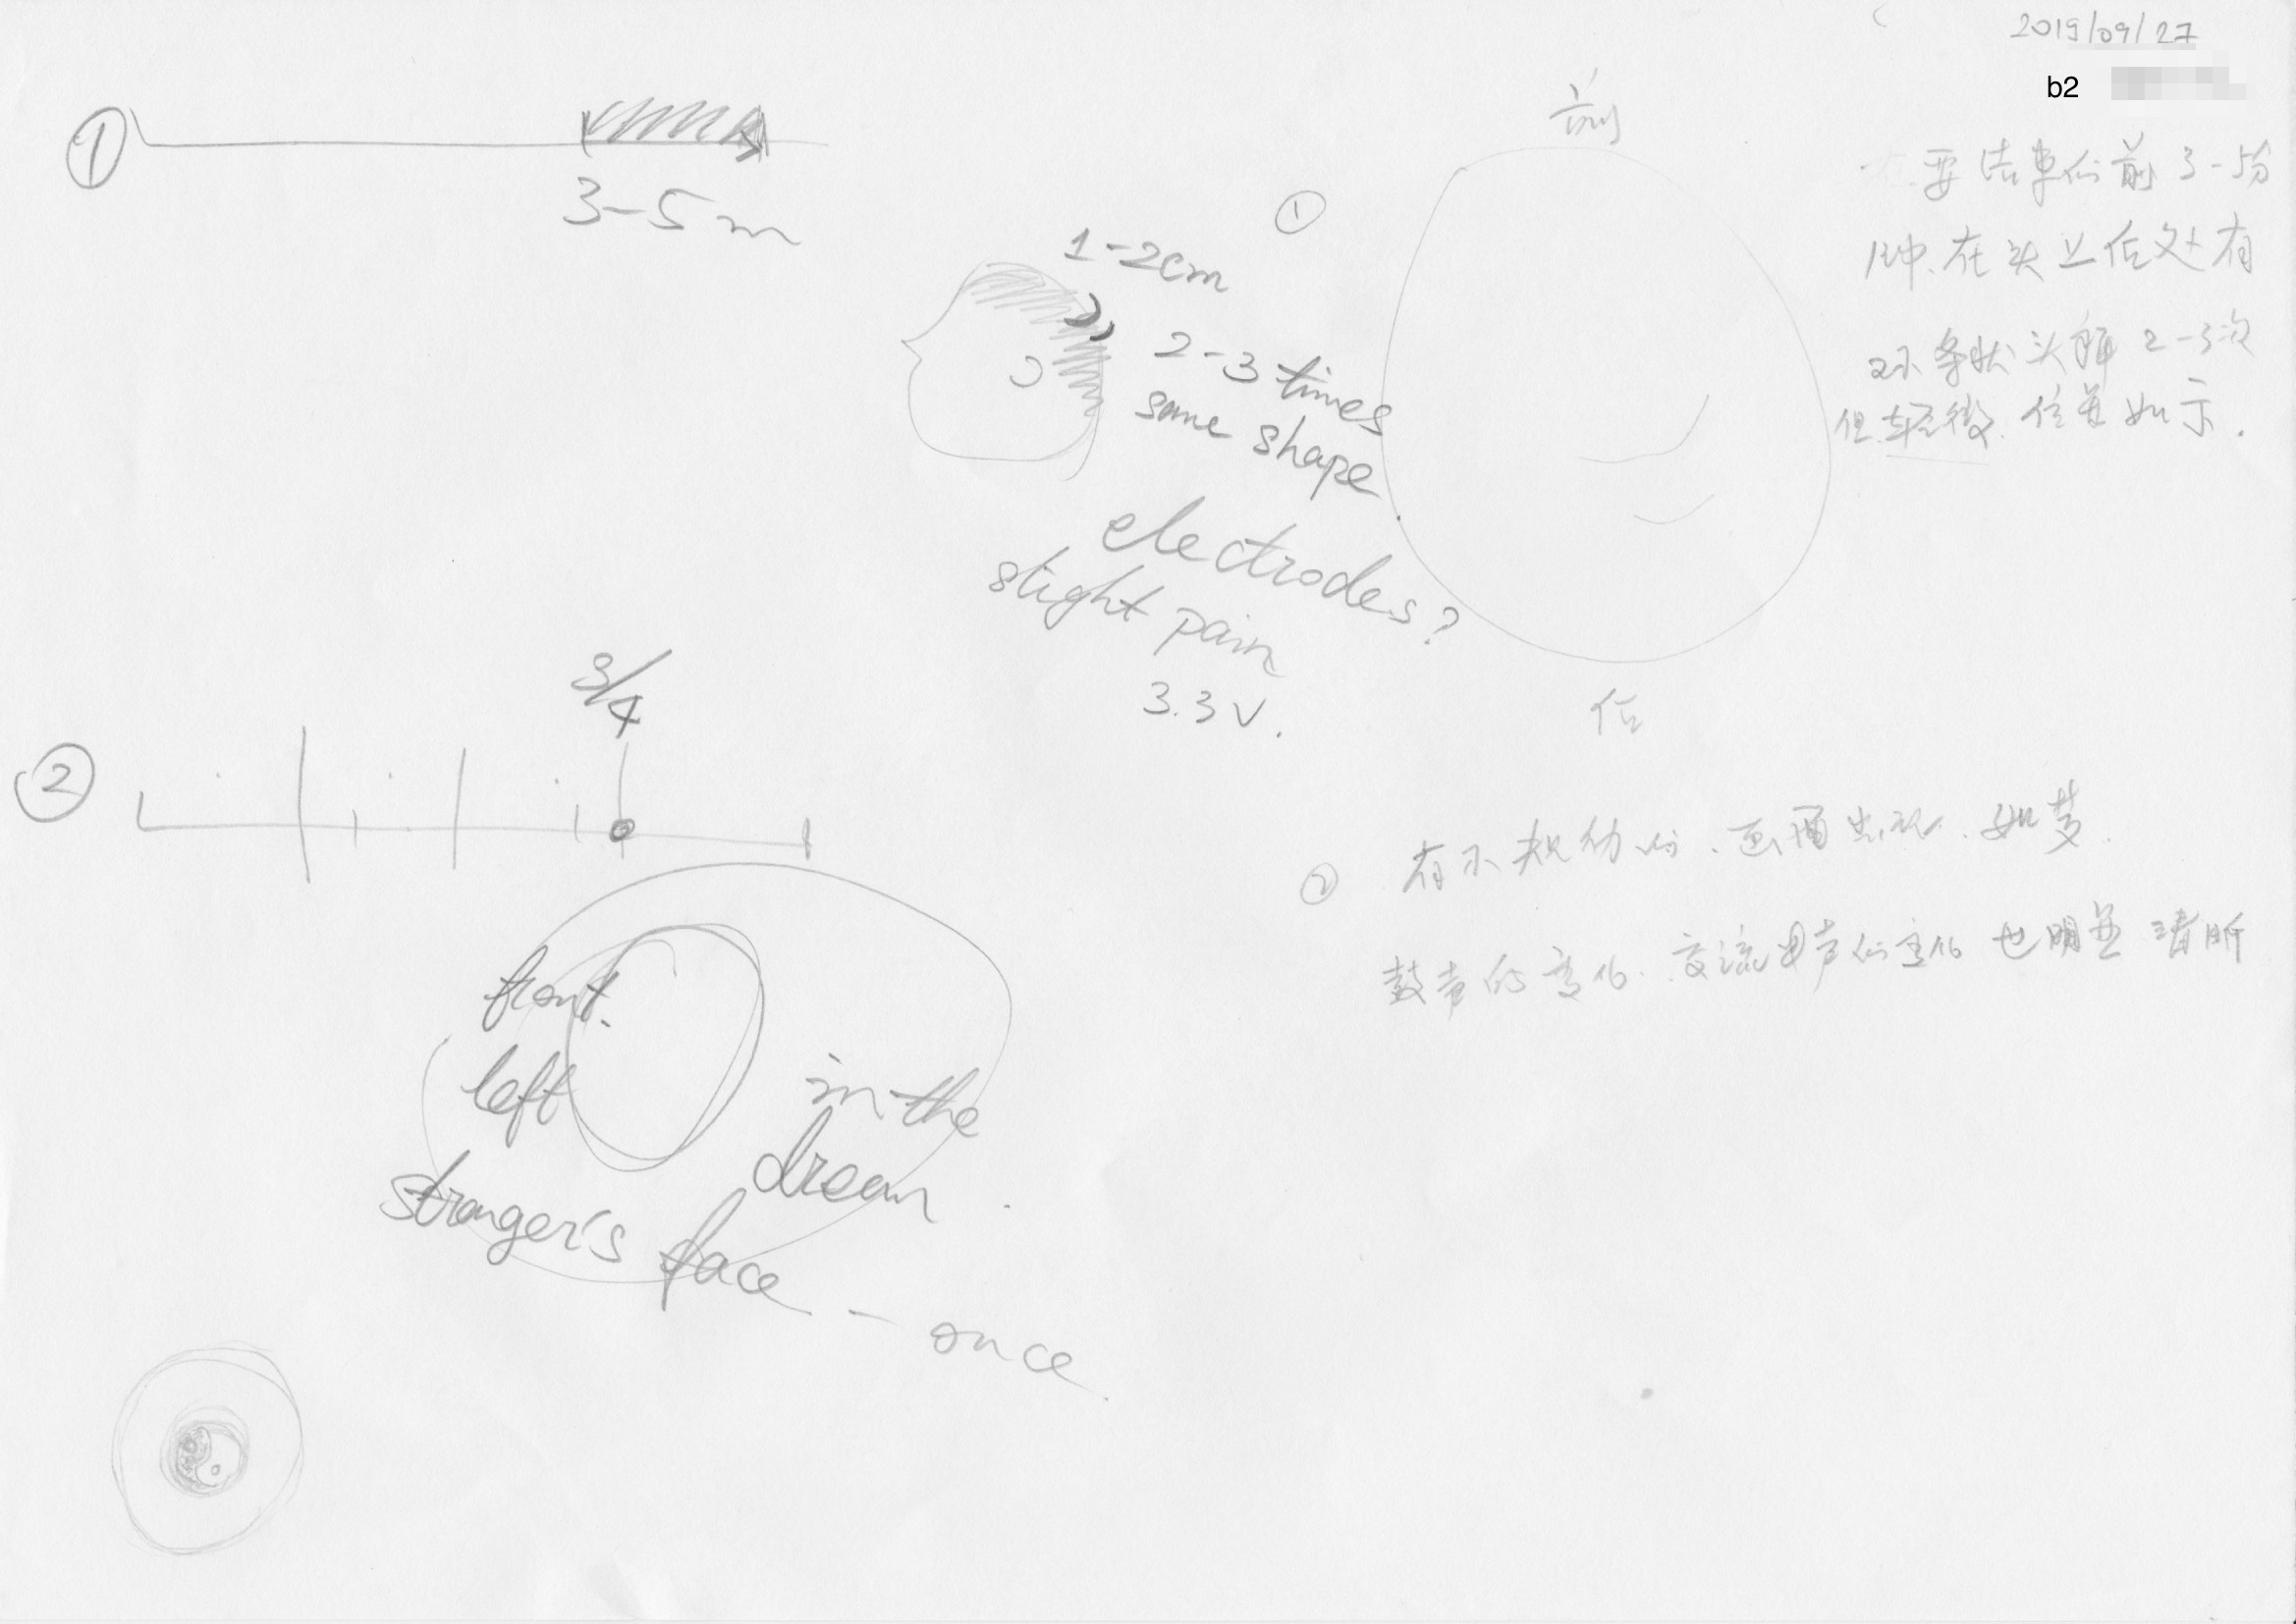 2019/09/27
b2
①
3-5m
①
前
1-2cm
2-3 times
same shape
electrodes?
slight pain
3.3V.
后
要结束的前3-5分
钟.在头上后处有
条状头疼2-3次
但轻微.位置如示.
②
3/4
front.
left
in the
dream.
stranger's face - once
② 有不规纳的.画面出现.如梦.
鼓声的变化.交流电声的变化也明显清晰